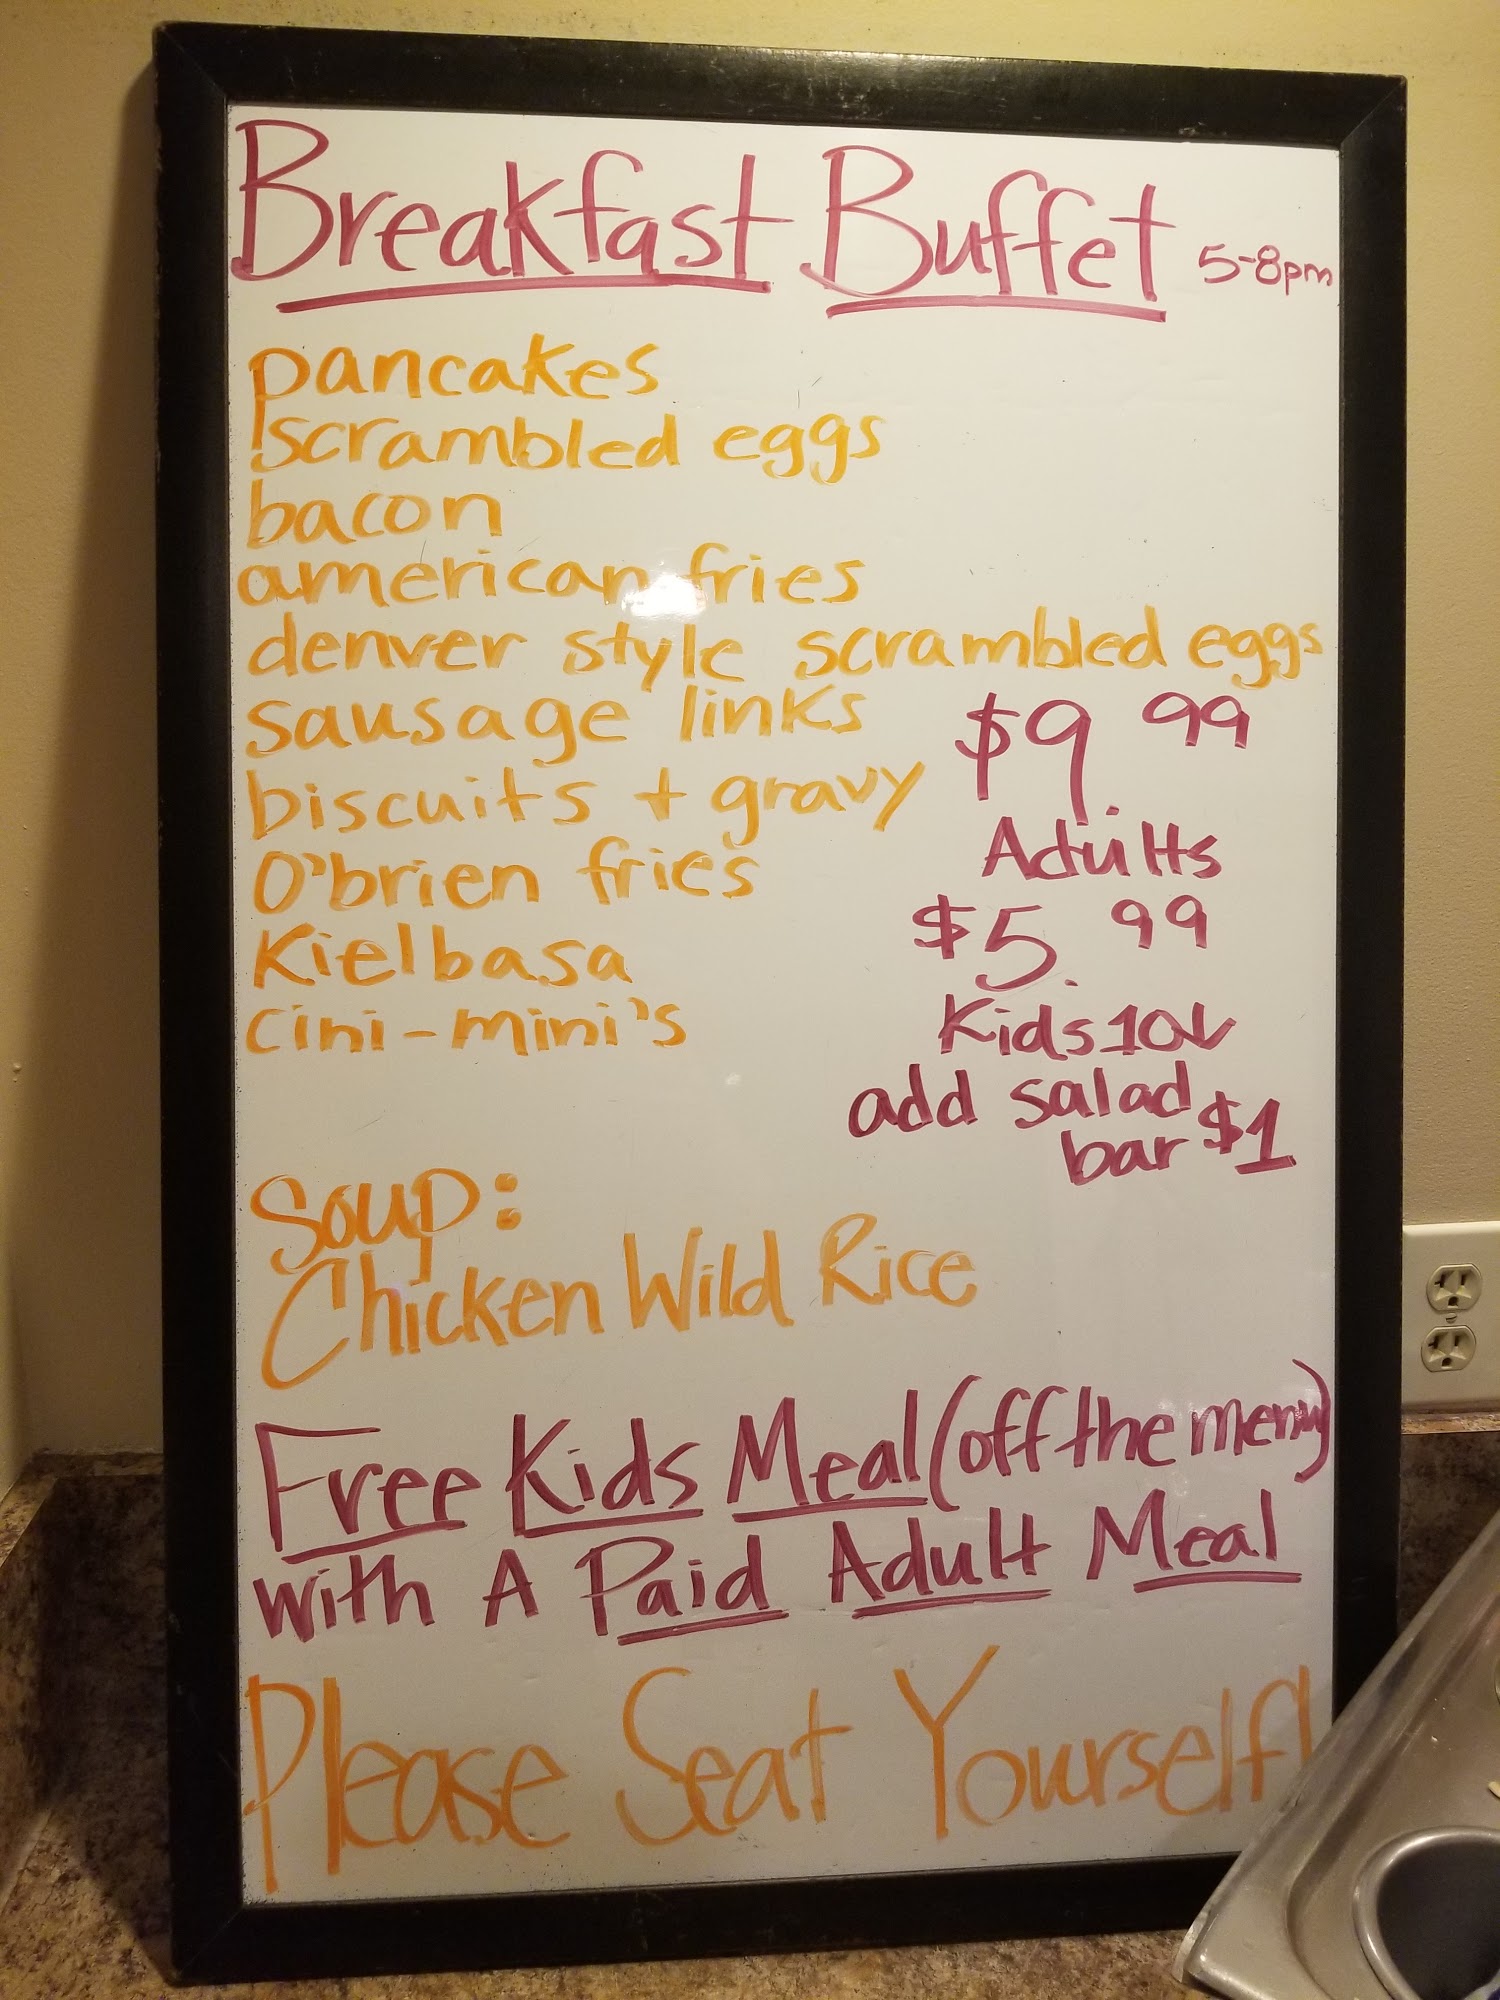 Breakfast Buffet 5-8pm
pancakes
scrambled eggs
bacon
american fries
denver style scrambled eggs
sausage links
biscuits + gravy
O'brien fries
Kielbasa
cini-mini's
$9.99
Adults
$5.99
Kids 10↓
add salad
bar $1
Soup:
Chicken Wild Rice
Free Kids Meal (off the menu)
with A Paid Adult Meal
Please Seat Yourself!